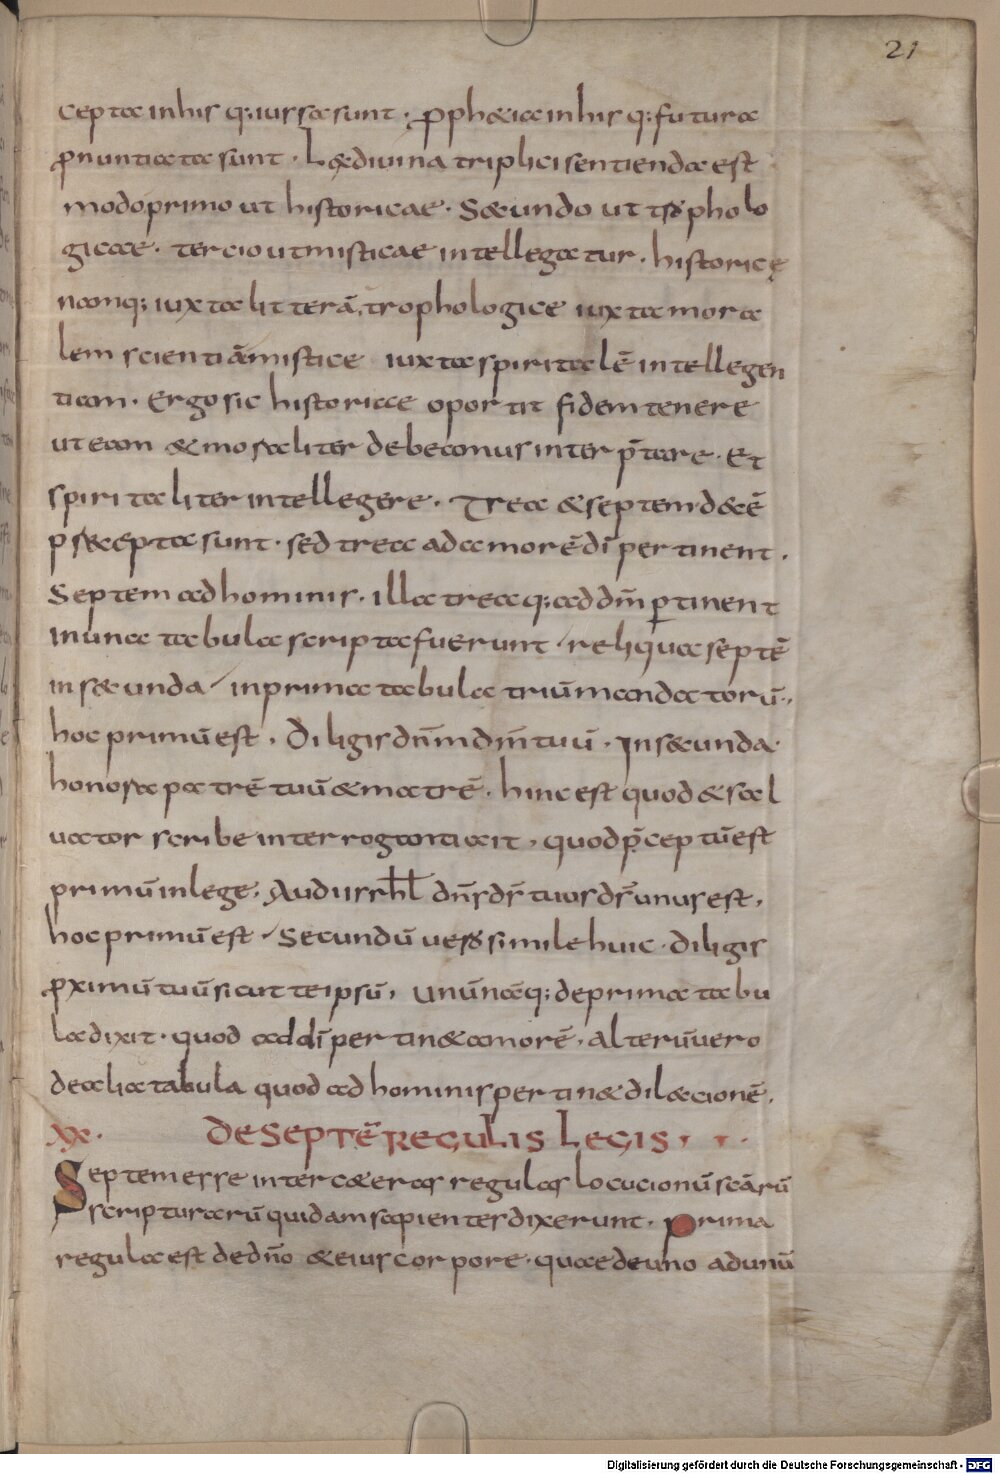 21
cepta in his q; iussa sunt. pph&ia in his q; futura
pnuntiata sunt. Lex divina triplici sentienda est
modo primo ut historicae. Secundo ut tropholo
gicae. tercio ut misticae intellegatur. historicę
namq; iuxta litterā, trophologice iuxta mora
lem scientiā mistice iuxta spiritalē intellegen
tiam. Ergo sic historicae oportit fidem tenere
ut eam & moraliter debeamus interp̄tare. Et
spiritaliter intellegere. Trea & septem d&cē
p̄cepta sunt. sed trea ad amorē dī pertinent.
Septem ad hominis. illa trea q; ad dm̄ ptinent
in una tabula scripta fuerunt reliqua septē
in secunda in prima tabula triū mandatorū.
hoc primū est. Diligis dn̄m dm̄ tuū. In secunda
honora patrē tuū & matrē. hinc est quod & sal
vator scribe interrogtanti ait. quod p̄ceptū est
primū in lege. Audi isrhl dn̄s ds̄ tuus ds̄ unus est.
hoc primū est. Secundū vero simile huic. diligis
pximū tuū sicut te ipsū. unū nāq; de prima tabu
la dixit. quod ad dī pertin& amorē. alterū vero
de alia tabula quod ad hominis pertin& dilectionē.
XX. DE SEPTĒ REGULIS LEGIS.
Septem esse inter c&eras regulas locucionū scārū
scripturarū quidam sapientes dixerunt. Prima
regula est de dn̄o & eius corpore. quae de uno ad unū
Digitalisierung gefördert durch die Deutsche Forschungsgemeinschaft - DFG